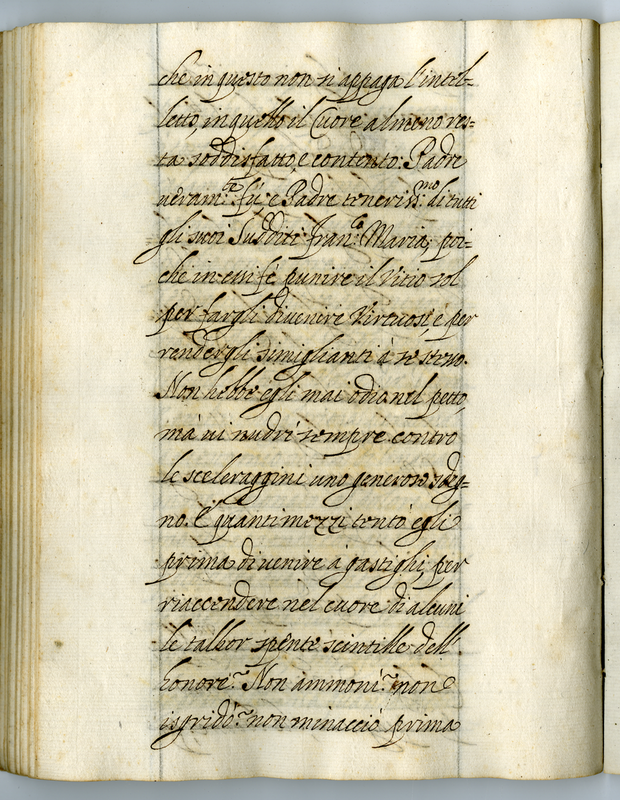 che in questo non si appaga l'intel=
letto, in quello il Cuore almeno res=
ta soddisfatto, e contento. Padre
veram.te fù e Padre teneriss.mo di tutti
gli suoi Sudditi Fran.co Maria, poi=
che in essi fè punire il Vitio sol
per fargli divenire Virtuosi, e per
rendergli simiglianti à se stesso.
Non hebbe egli mai odio nel petto,
mà vi nudrì sempre contro
le sceleraggini uno generoso sdeg=
no. E quanti mezzi tentò egli
prima di venire à gastighi, per
riaccendere nel cuore di alcuni
le talhor spente scintille dell'
honore? Non ammonì? non
isgridò? non minacciò prima